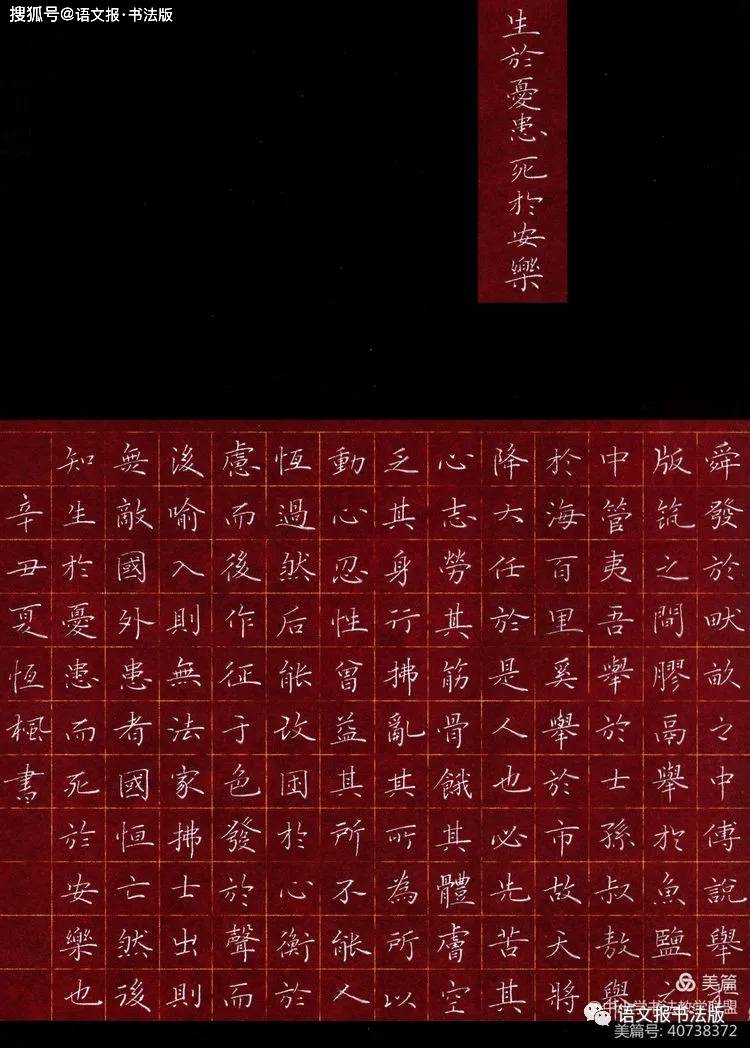 搜狐号@语文报·书法版
生於憂患死於安樂
舜發於畎畝之中傅說舉
版筑之間膠鬲舉於魚鹽之
中管夷吾舉於士孫叔敖舉
於海百里奚舉於市故天將
降大任於是人也必先苦其
心志勞其筋骨餓其體膚空
乏其身行拂亂其所為所以
動心忍性曾益其所不能人
恆過然后能改困於心衡於
慮而後作征于色發於聲而
後喻入則無法家拂士出則
無敵國外患者國恒亡然後
知生於憂患而死於安樂也
辛丑夏恆楓書
美篇
语文报书法版
美篇号: 40738372